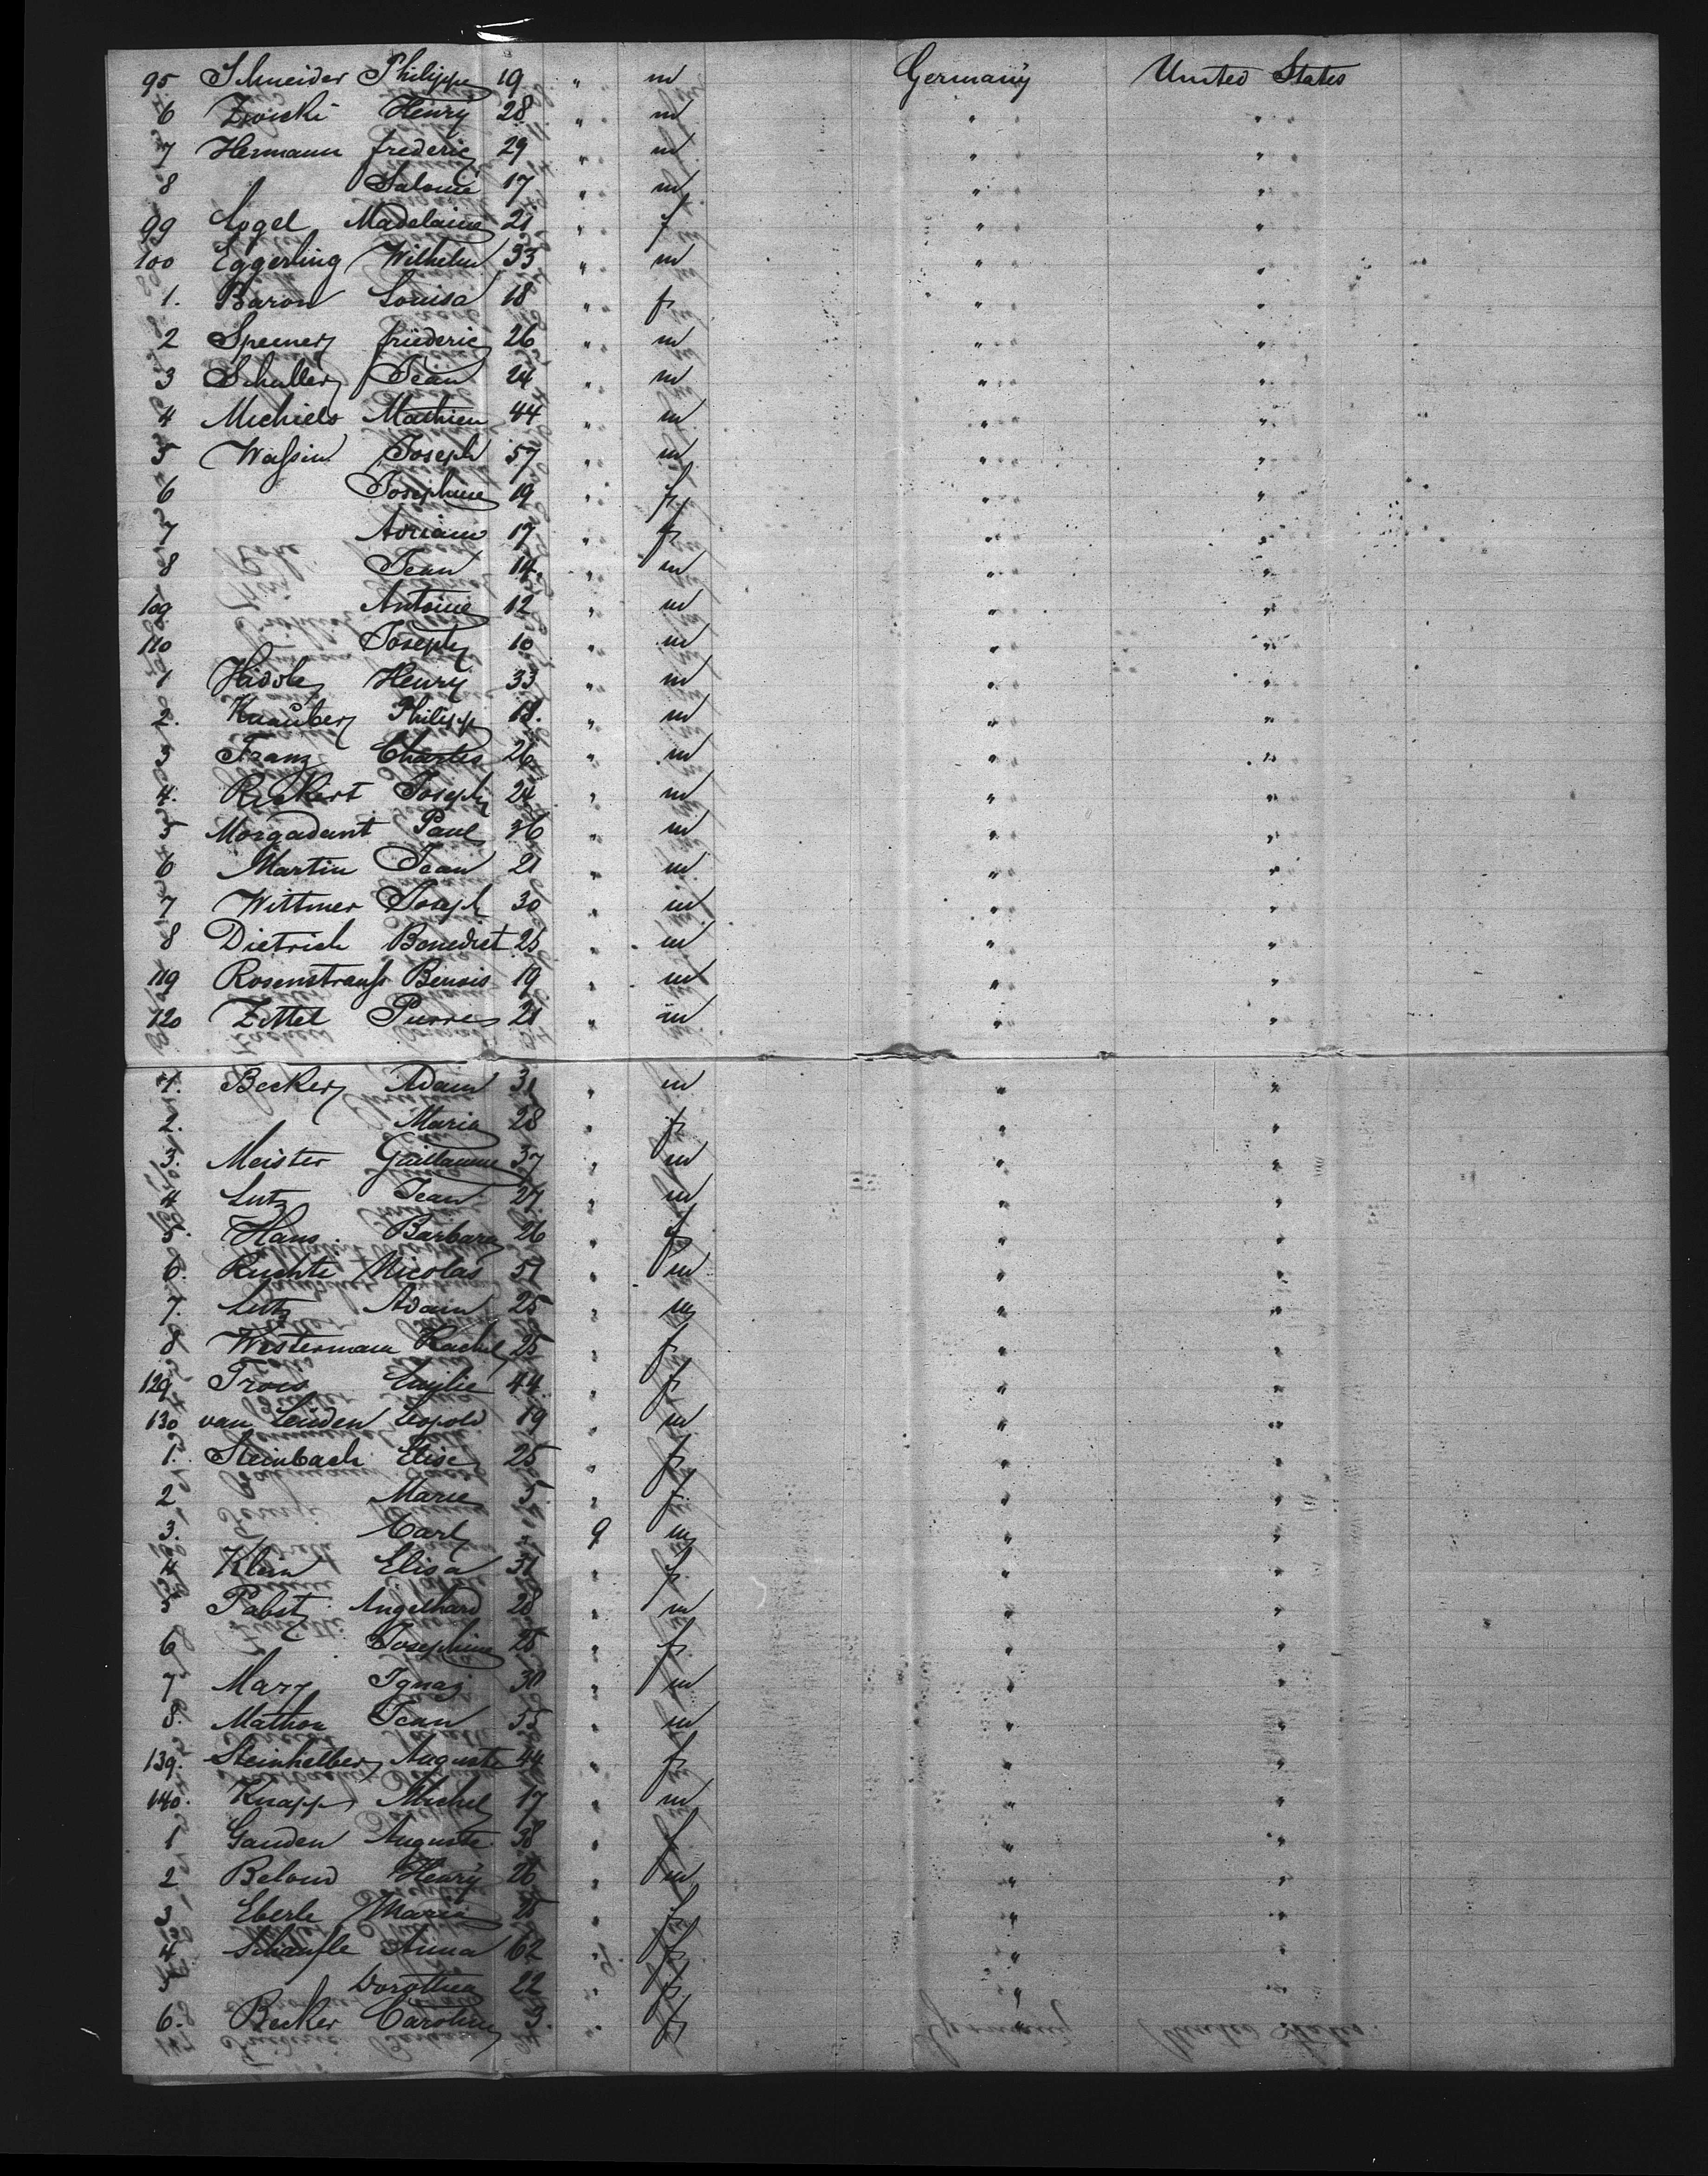 95 Schneider Philippe 19 " m Germany United States
6 Zwicki Henry 28 " m " "
7 Hermann frederic 29 " m " "
8 Salomé 17 " m " "
99 Madelaine 21 f " "
100 Eggerling Wilhelm 33 " m " "
1. Baron Louisa 18 " f " "
2 friederic 26 " m " "
3 Schuller Jean 24 " m " "
4 Michiels Mathieu 44 " m " "
5 Waſsin Joseph 57 " m " "
6 Josephine 19 " f " "
7 17 " f " "
8 Jean 14. " m " "
109 Antoine 12 " m " "
110 Joseph 10 " m " "
1 Henry 33 " m " "
2. Knauber Philipp 18. " m " "
3 Franz Charles 26 " m " "
4. Joseph 24 " m " "
5 Morgadant Paul 36 " m " "
6 Martin Jean 21 " m " "
7 Wittmer Joseph 30 " m " "
8 Dietrich Benedict 25 " m " "
119 Rosenstrauſs Benois 19 " m " "
120 Zittel Pierre 21 " m " "
1. Becker Adam 31 " m " "
2. Maria 28 f " "
3. Meister Guillaume 37 " m " "
4 Lutz Jean 27 " m " "
5. Hans Barbara 26 " f " "
6. Ruchti Nicolas 51 " m " "
7. Lutz Adam 25 " m " "
8 Westermann Rachel 25 " f " "
129 Emilie 44 " f " "
130 van Leuden Leopold 19 " m " "
1. Steinbach Elise 25 " f " "
2 Marie 5 " f " "
3. Carl 9 m " "
4 Klein Elisa 31 " f " "
5 Pabst Angelhard 28 " m " "
6 Josephine 25 " f " "
7 Marx Ignaz 30 m " "
8. Mathon Jean 55 " m " "
139. Steinhelber Auguste 44 " f " "
140. Knapp Michel 17 " m " "
1 Gauden Auguste 38 " f " "
2 Henry 26 " m " "
3 Eberle Maria 25 " f " "
4. Schaufle Anna 62 " f " "
5 Dorothea 22 " f " "
6. Becker Caroline 3. " f "